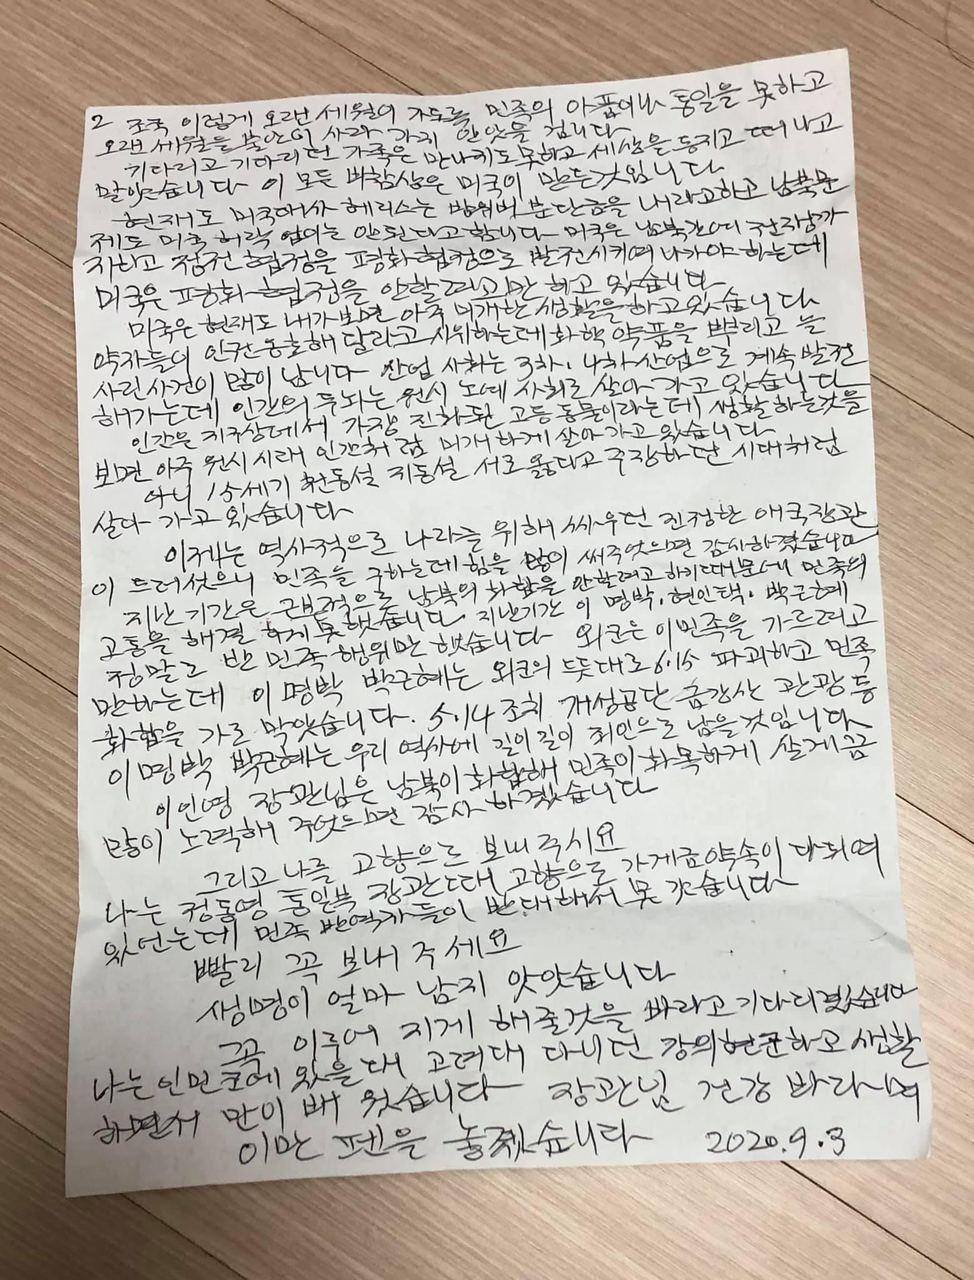 2 조국 이렇게 오랜 세월이 가도록 민족의 아픔이나 통일을 못하고
오랜 세월을 불안이 사라 가지 안앗을 겁니다
기다리고 기다리던 가족은 만나지도 못하고 세상을 등지고 떠나고
말았습니다 이 모든 비참상은 미국이 만든것입니다
현재도 미국대사 헤리스는 방위비 분단금을 내라고하고 남북문
제도 미국 허락 업이는 안된다고 합니다 미국은 남북간에 군은
지하고 정전 협정을 평화 협정으로 발전시키며 나가야 하는데
미국은 평화 협정을 안할려고만 하고 있습니다
미국은 현재도 내가보면 아주 미개한 생활을 하고있습니다
약자들이 인권 옹호해 달라고 시위하는데 화핵 약품을 뿌리고 늘
사린사건이 많이 납니다 산업 사회는 3차, 4차 산업으로 계속 발전
해가는데 인간의 두뇌는 원시 노예 사회로 살아 가고 있습니다
인간은 지구상에서 가장 진화된 고등 동물이라는데 생활하는것을
보면 아주 원시시대 인간처럼 미개하게 살아가고 있습니다
아니 15세기 천동설 지동설 서로 옳다고 주장하던 시대처럼
살다 가고 있습니다
이제는 역사적으로 나라를 위해 싸우던 진정한 애국장관
이 드러섯으니 민족을 구하는데 힘을 많이 써주엇으면 감사하겠습니다
지난 기간은 근본적으로 남북의 화합을 안할려고 하기때문에 민족의
고통을 해결 하지 못했습니다 지난기간 이명박. 현인택. 박근혜
정말로 반 민족 행위만 했습니다 외국은 이민족을 가르려고
만하는데 이명박 박근혜는 외국의 뜻대로 6.15 파괴하고 민족
화합을 가로 막앗습니다. 5.14 조치 개성공단 금강산 관광 등
이명박 박근혜는 우리 역사에 길이길이 죄인으로 남을 것입니다
이인영 장관님은 남북이 화합해 민족이 화목하게 살게끔
많이 노력해 주엇으면 감사 하겠습니다
그리고 나를 고향으로 보내 주시요
나는 정동영 통일부 장관때 고향으로 가게끔 약속이 다되여
있었는데 민족 반역자들이 반대해서 못 갔습니다
빨리 꼭 보내 주세요
생명이 얼마 남지 않앗습니다
꼭 이루어 지게 해줄것을 바라고 기다리겠습니다
나는 인민군에 있을 대 고려대 다니던 강의현군하고 생활
하면서 만이 배 웟습니다 장관님 건강 바라며
이만 펜을 놓겠습니다 2020.9.3